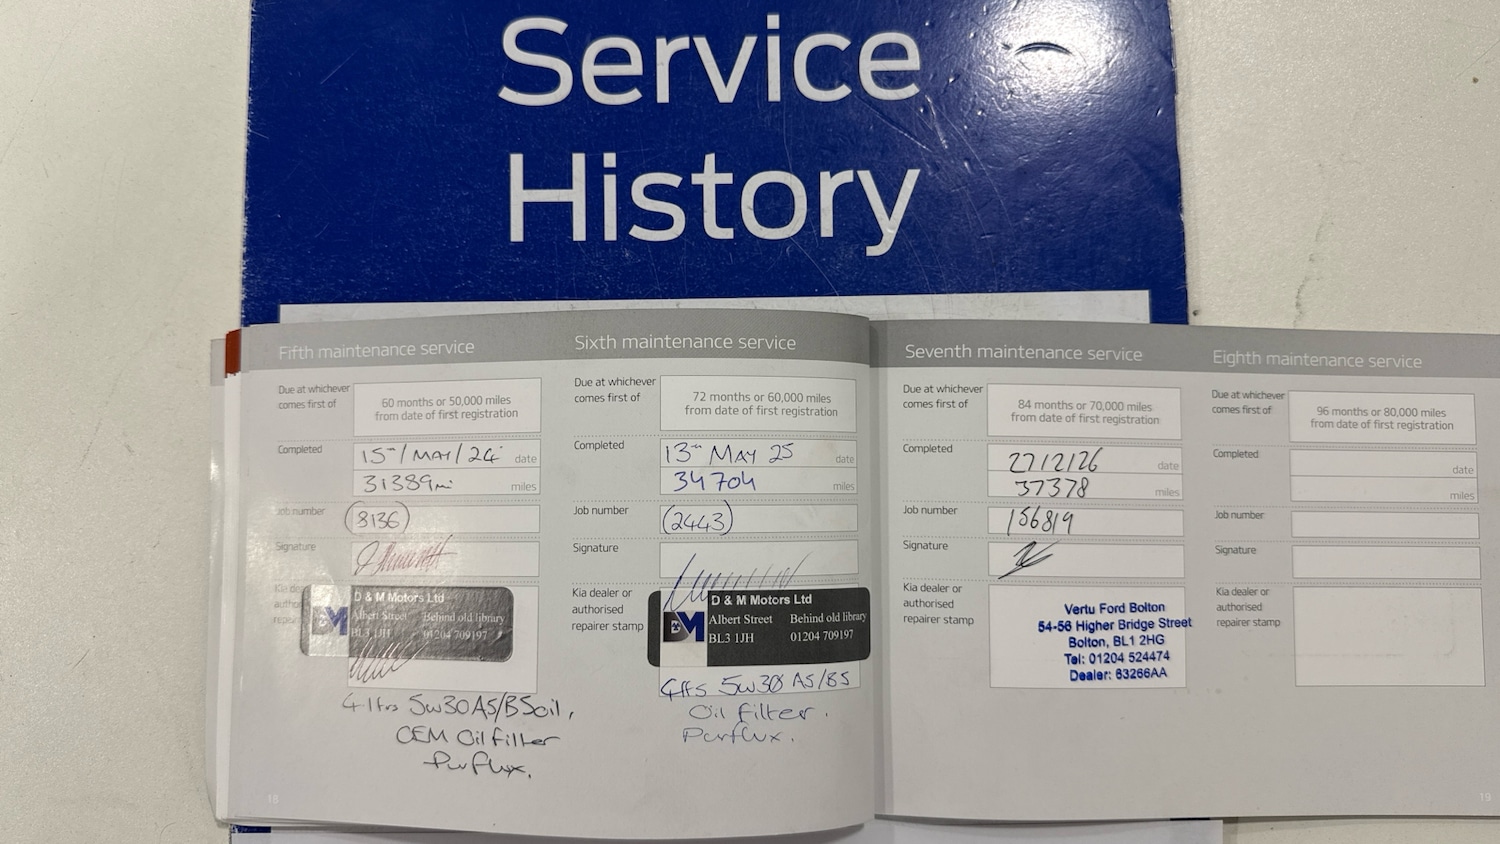 Service
History
Fifth maintenance service
Due at whichever
comes first of
60 months or 50,000 miles
from date of first registration
Completed
15TH/MAY/24 date
31389mi miles
Job number
(8136)
Signature
Kia de
autho
repai
D & M Motors Ltd
Albert Street Behind old library
BL3 1JH 01204 709197
4 ltrs 5W30 A5/B5 oil,
OEM Oil filter
Purflux.
18
Sixth maintenance service
Due at whichever
comes first of
72 months or 60,000 miles
from date of first registration
Completed
13TH MAY 25 date
34704 miles
Job number
(2443)
Signature
Kia dealer or
authorised
repairer stamp
DM
D & M Motors Ltd
Albert Street Behind old library
BL3 1JH 01204 709197
4ltrs 5W30 A5/B5
Oil filter.
Purflux.
Seventh maintenance service
Due at whichever
comes first of
84 months or 70,000 miles
from date of first registration
Completed
27/2/26 date
37378 miles
Job number
156819
Signature
Kia dealer or
authorised
repairer stamp
Vertu Ford Bolton
54-56 Higher Bridge Street
Bolton, BL1 2HG
Tel: 01204 524474
Dealer: 63266AA
Eighth maintenance service
Due at whichever
comes first of
96 months or 80,000 miles
from date of first registration
Completed
date
miles
Job number
Signature
Kia dealer or
authorised
repairer stamp
19